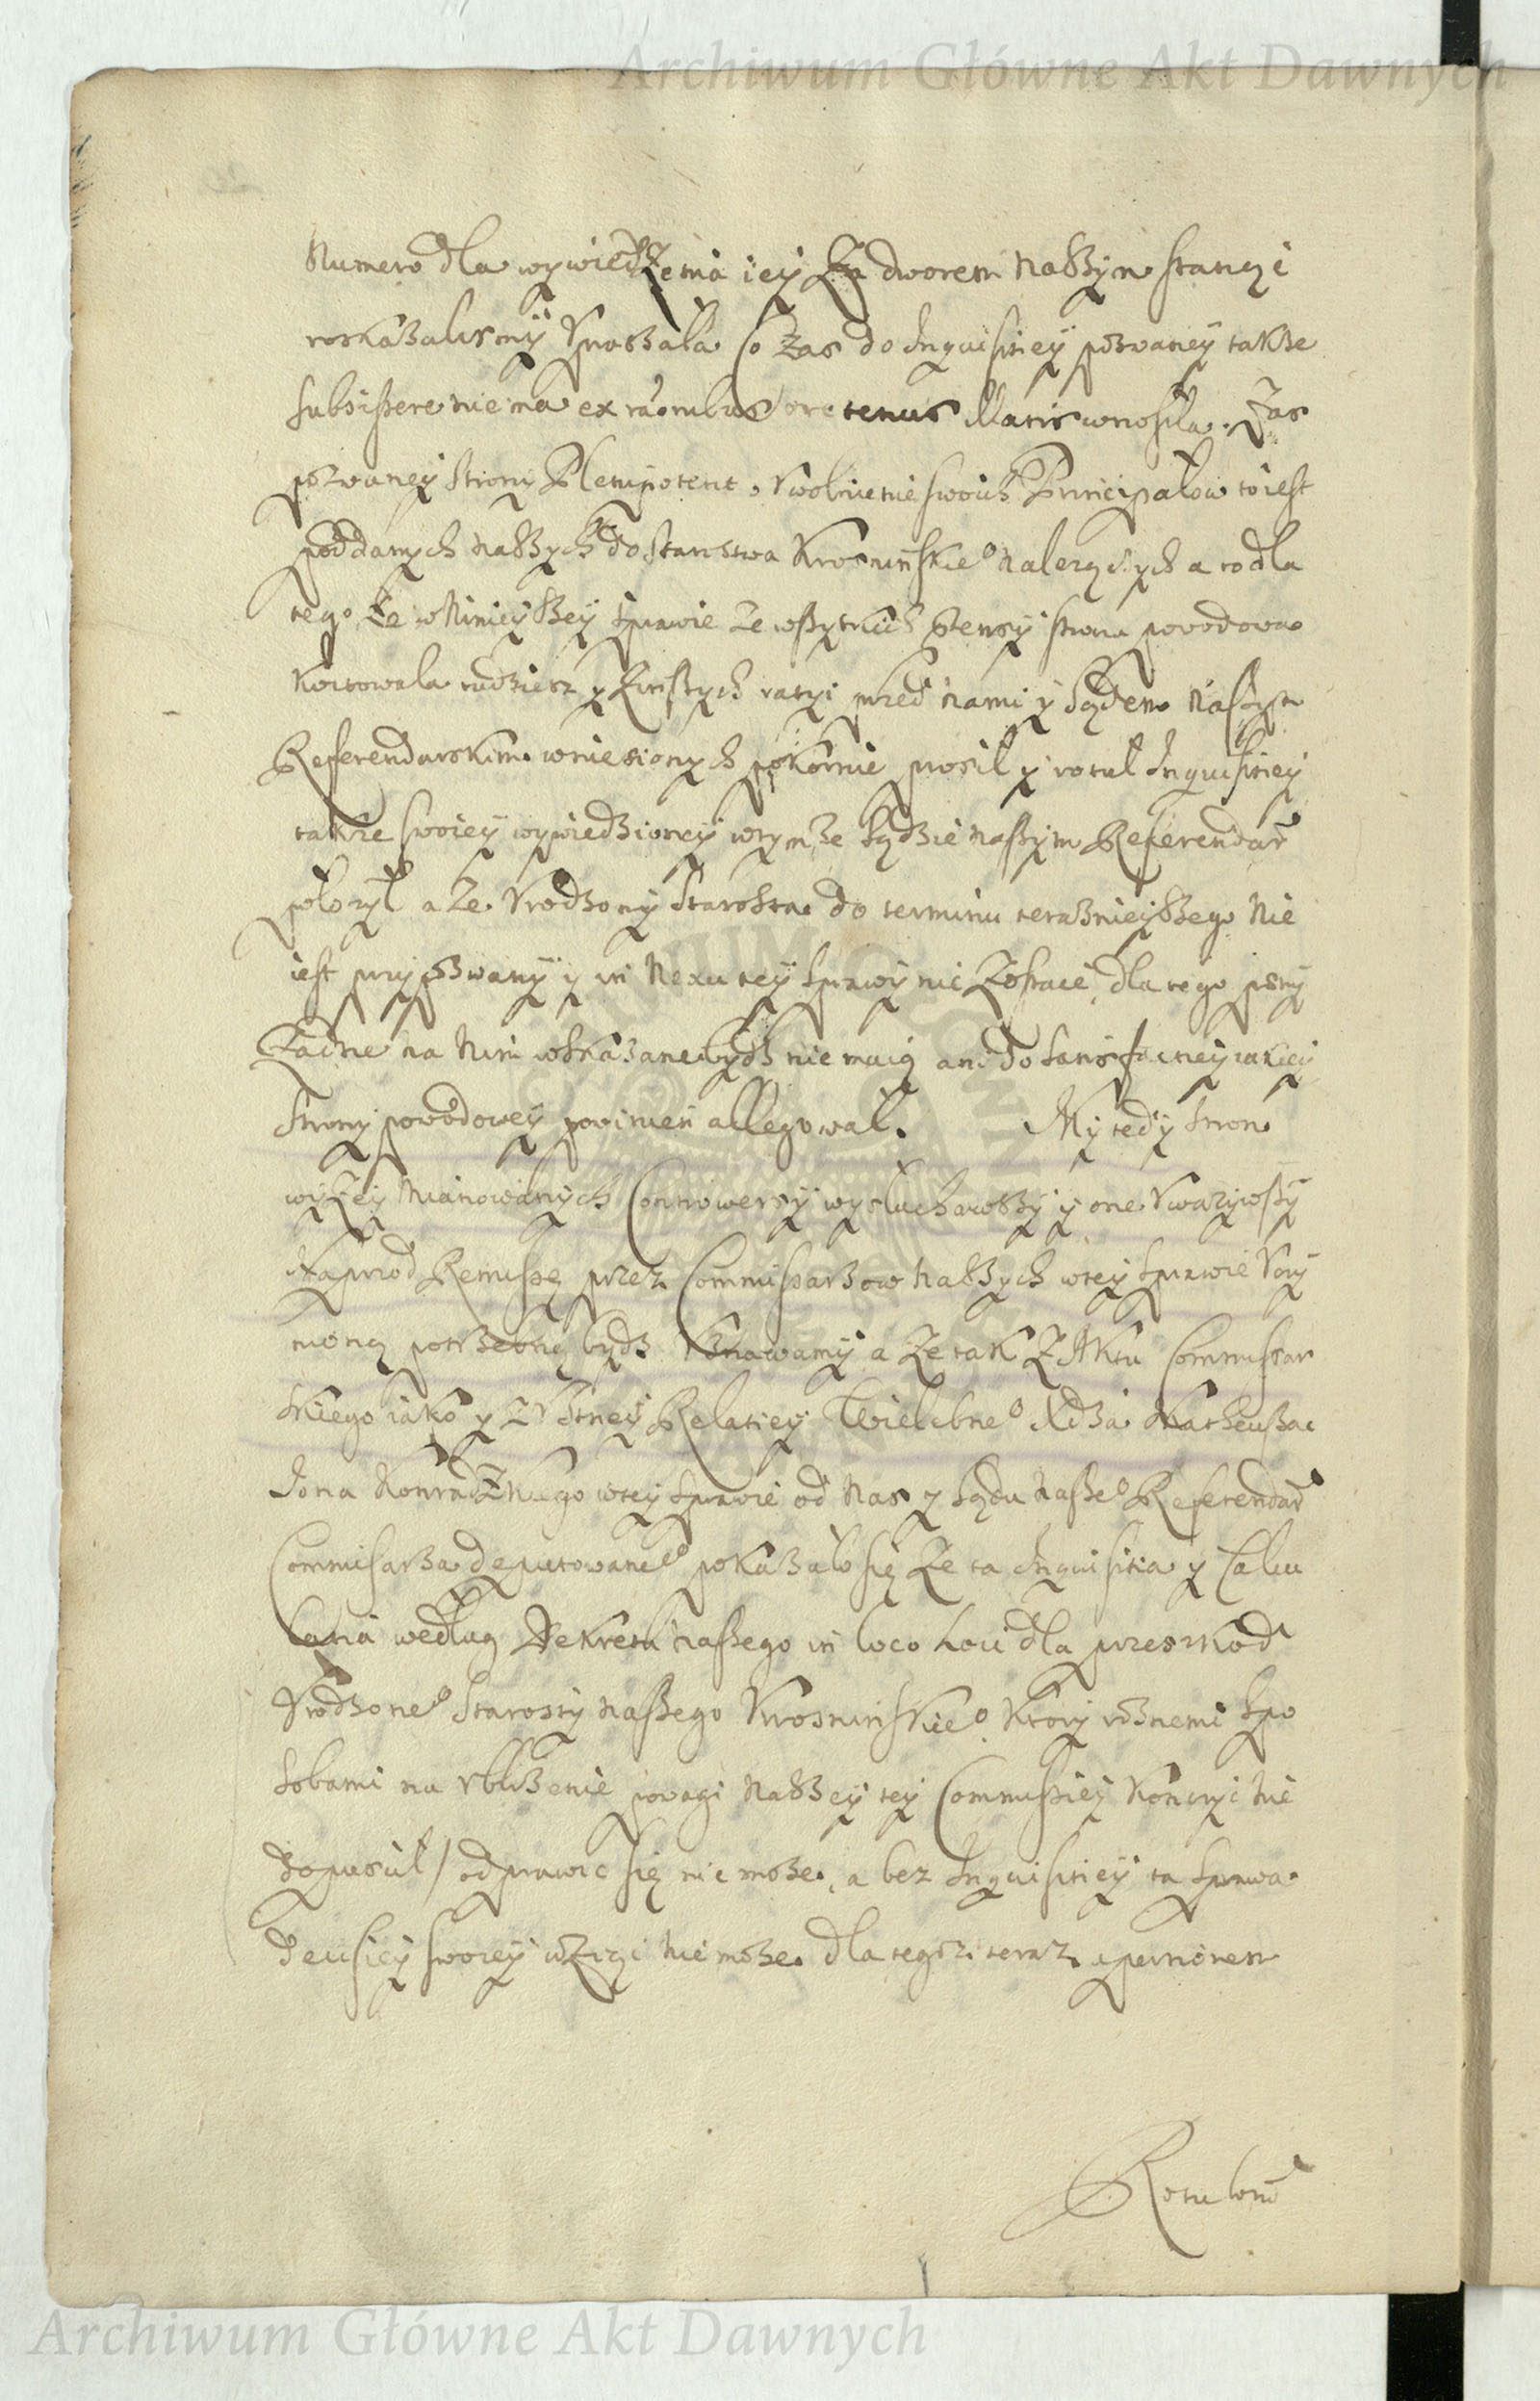 Archiwum Główne Akt Dawnych
Numero dla wywiedzenia iey za dworem naszym stanąć
roskazalismy Vpraszała Co zas do Inquisitiey pozwaney takze
subsistere nie ma ex ra̅onibus ore tenus illatis wnosiła. Zas
pozwaney strony Plenipotent, Vwolnienie swoich Principałow to iest
poddanych naszych do starostwa Krosninskie° nalezących a to dla
tego ze w ninieyszey sprawie ze wszytkich strona powodowa
kwitowala tudziesz y z inszych ratyi przed nami y sądem naszym
Referendarskim wniesionych pokornie prosił y rotuł Inquisitiey
takze swoiey wywiedzioney w tymze sądzie naszym Referendar
połozył a ze Vrodzony Starosta do terminu teraznieyszego nie
iest przypozwany y in nexu tey sprawy nie zostaie, dla tego
zadne na nim wskazane bydz nie maią ani do satisfactiey iakiey
strony powodowey powinien allegował. My tedy stron
wyzey mianowanych Controwersyi wysłuchawszy y one Vwazywszy
Naprzod Remissę przez Commissarzow naszych w tey sprawie Vczy
nioną potrzebną bydz Vznawamy a ze tak z Aktu Commissar
skiego iako y z Vstney Relatiey Wielebne° Xdza Matheusza
Jona Konradzkiego w tey sprawie od nas y sądu nasze° Referendar
Commisarza deputowane° pokazało się ze ta Inquisitia y Calcu
latia według Dekretu naszego in loco loci dla przeszkod
Vrodzone° Starosty naszego Krosninskie° ktory roznemi spo
sobami na Vblizenie powagi naszey tey Commissiey konczyc nie
dopuscił / odprawic się nie moze, a bez Inquisitiey ta sprawa
decisiey swoiey wziąć nie moze dla tegoz teraz apertionem
Rotulorum
Archiwum Główne Akt Dawnych